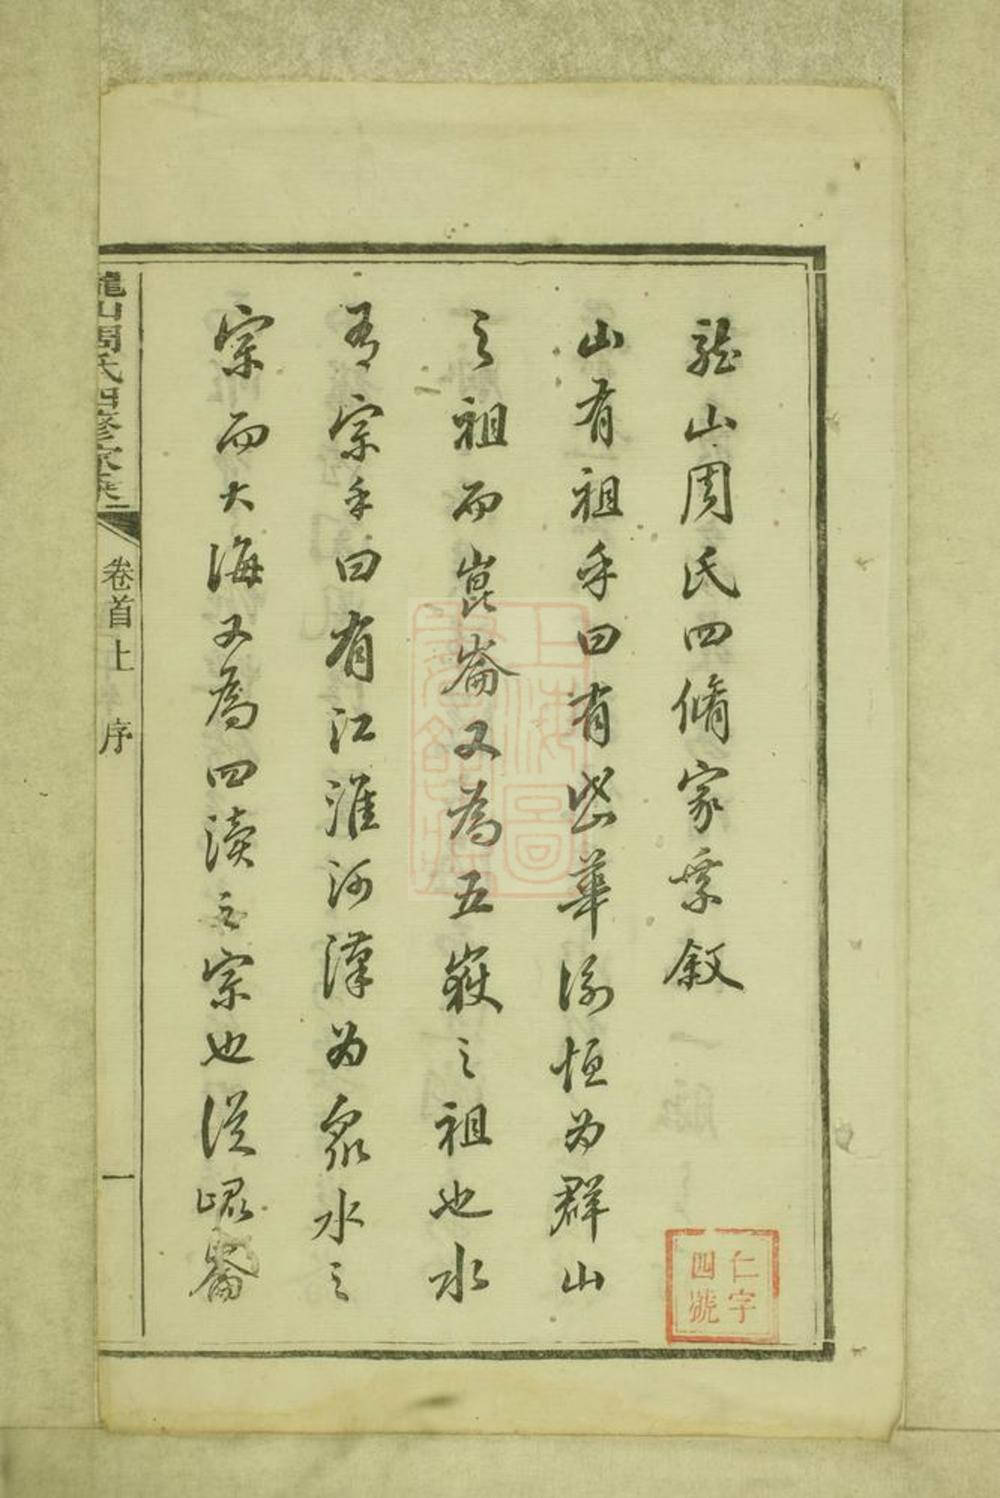 龍山周氏四脩家乘叙
山有祖乎曰有岱華衡恒为群山
之祖而崑崙又為五嶽之祖也水
有宗乎曰有江淮河漢为眾水之
宗而大海又為四瀆之宗也從崐崙
龍山周氏四修家乘
卷首上
序
一
仁字
四號
上海圖
書館藏